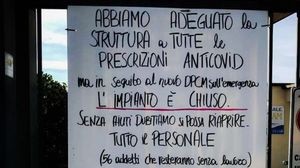 ABBIAMO ADEGUATO la
STRUTTURA a TUTTE le
PRESCRIZIONI ANTICOVID
ma in seguito al nuovo DPCM sull'emergenza
L'IMPIANTO È CHIUSO.
SENZA AIUTI DUBITIAMO SI POSSA RIAPRIRE.
TUTTO IL PERSONALE
(56 addetti che resteranno senza lavoro)